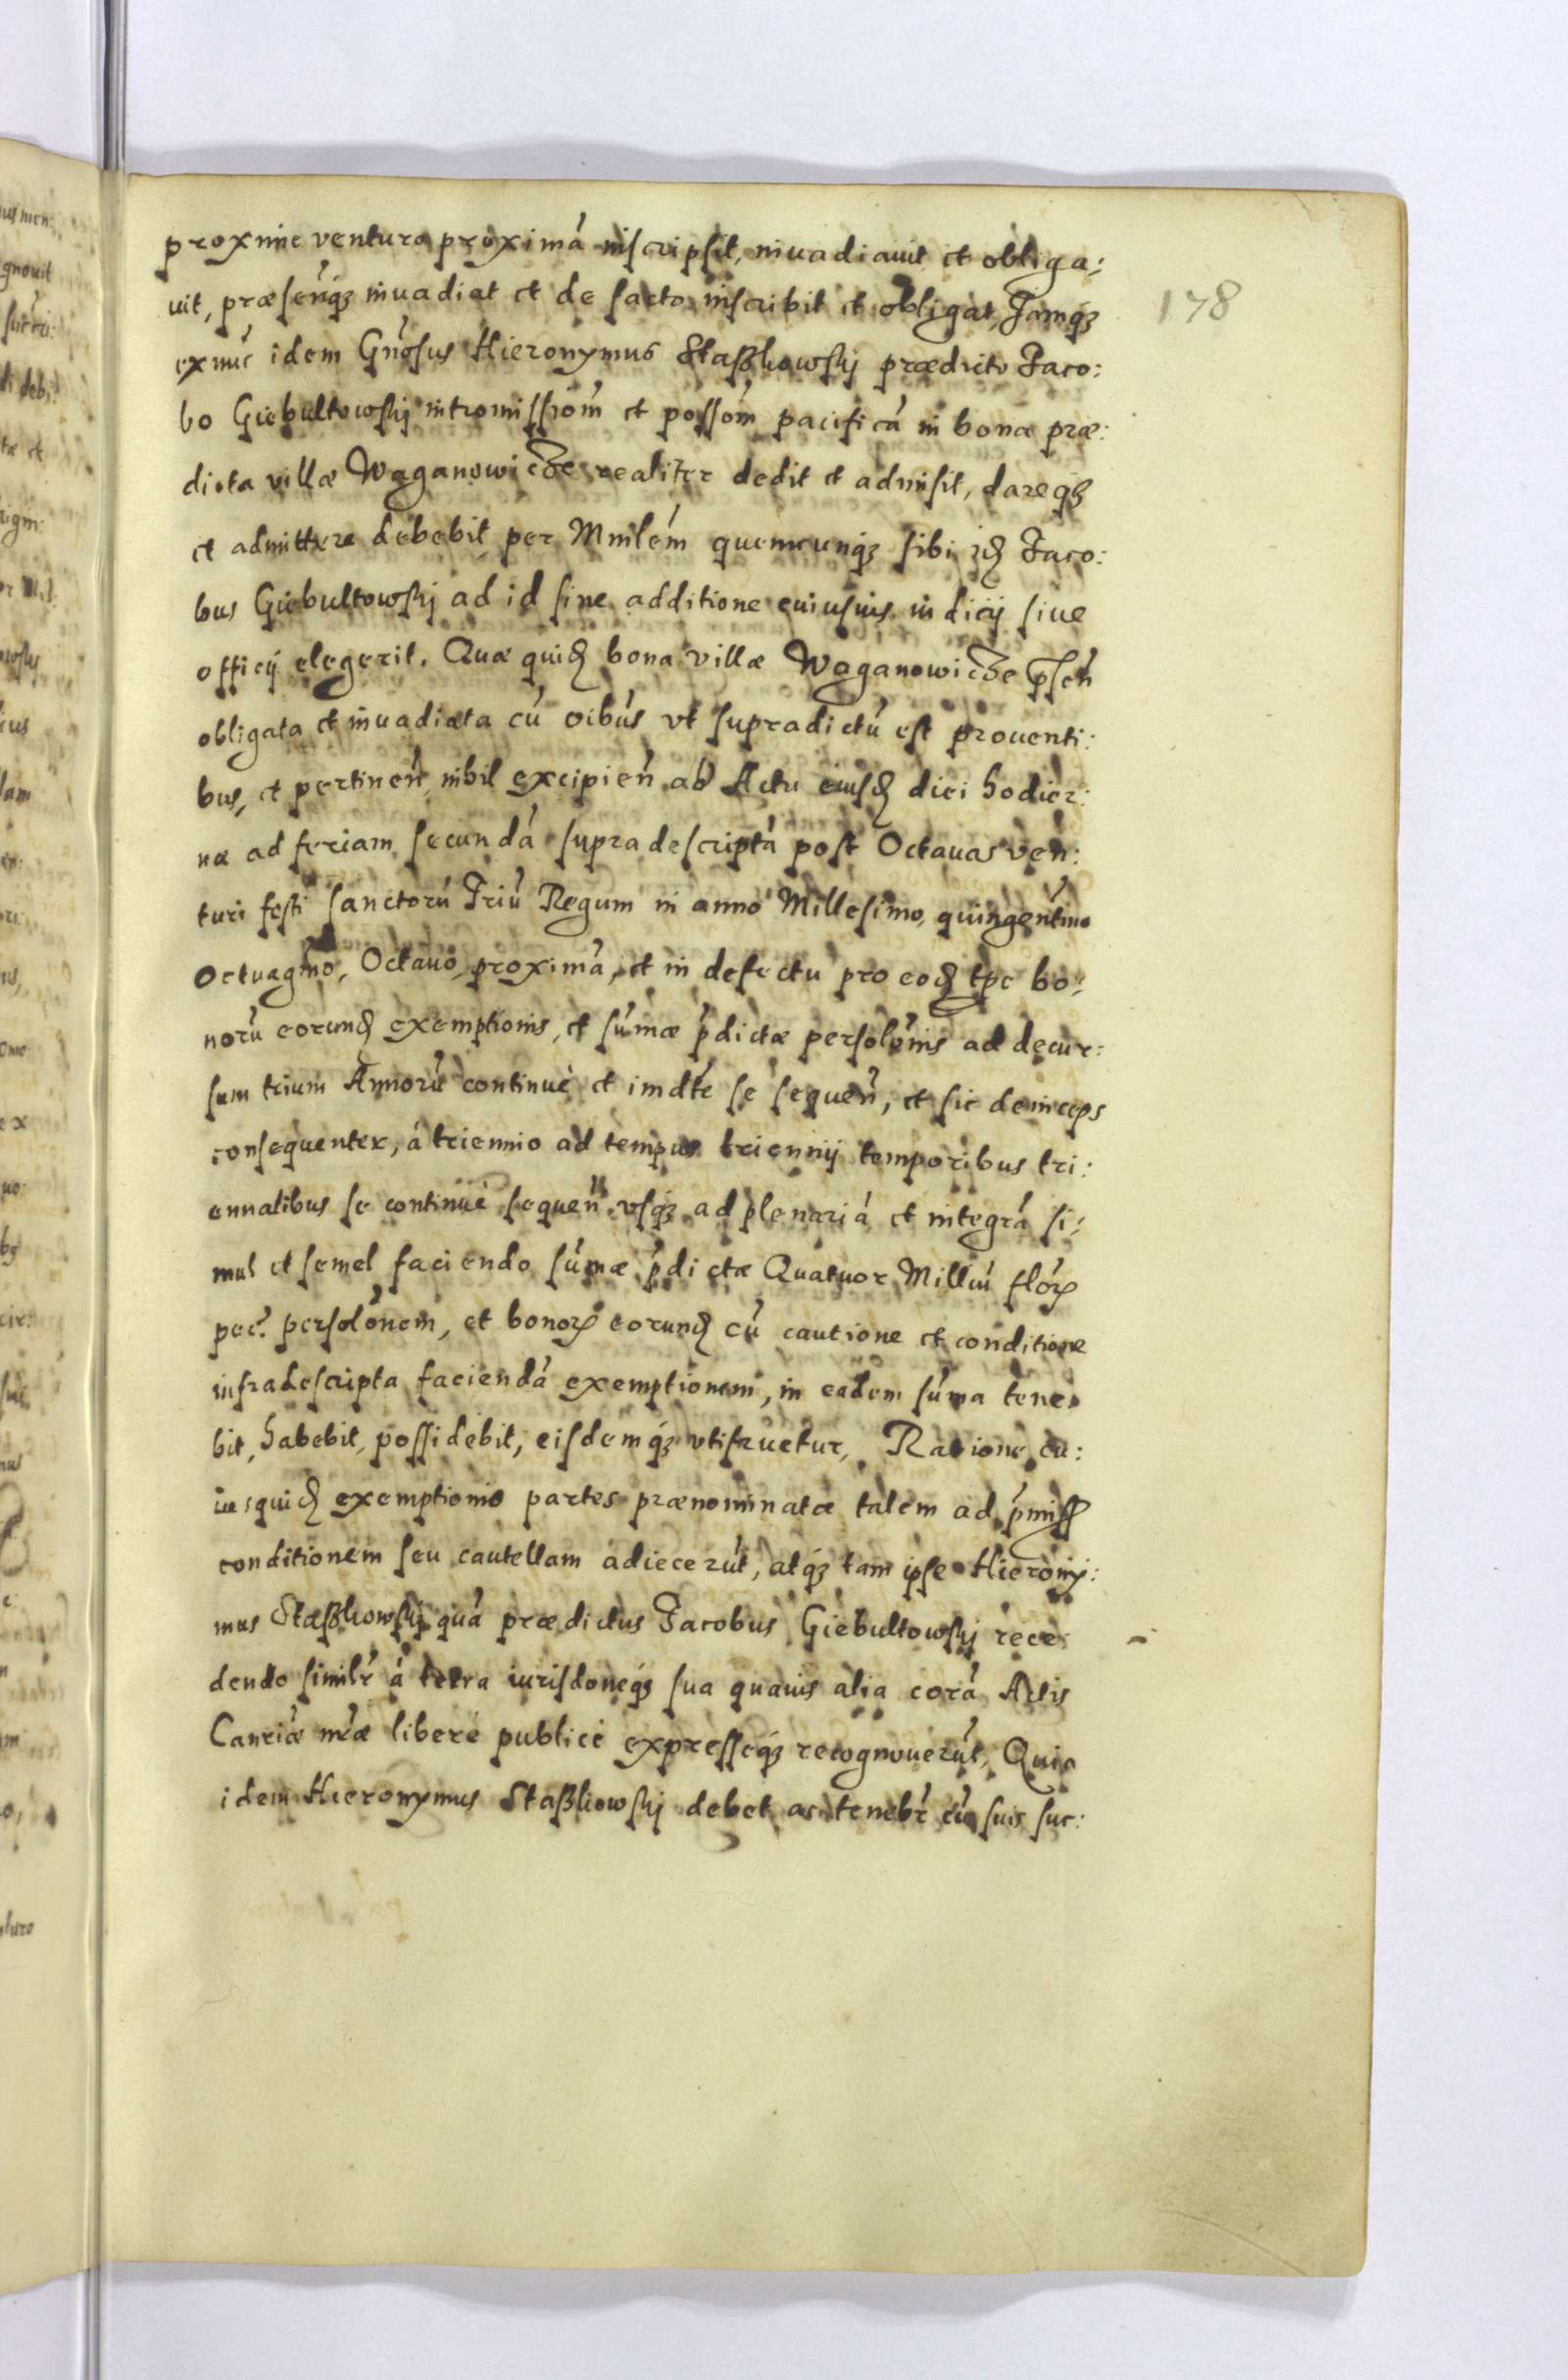 proxime ventura proximá inscripsit, inuadiauit et obliga:
uit, præsenq́ꝫ inuadiat et de facto inscribit et obligat, Jamq́ꝫ
exnuć idem Gńosus Hieronymus Staßkowskj prædicto Jaco:
bo Giebultowskj intromissióm et possóm pacificá in bona præ:
dicta villæ Waganowicze realiter dedit et admisit, dareq́ꝫ
et admittere debebit per Minlém quemcunq́ꝫ sibi idꝫ Jaco:
bus Giebultowskj ad id sine additione cuiusuis iudicij siue
officij elegerit. Quæ quidꝫ bona villæ Waganowicze p̃sen̄
obligata et inuadiata cū oībus vt supradictū est prouenti:
bus, et pertineń, nihil excipień ab Actu eiusdꝫ diei hodier:
næ ad feriam secundá supradescriptá post Octauas ven:
turi festi sanctorū Triū Regum in anno Millesimo, quingentīmo
Octuagīmo, Octauo, proximá, et in defectu pro eodꝫ tp̄e bo:
norū eorundꝫ exemptionis, et súmæ p̄dictæ persolōnis ad decur:
sum trium Annorū continuè et imdt́e se sequeń, et sic deinceps
consequenter, á triennio ad tempus triennij temporibus tri:
ennalibus se continuè sequeń vsq́ꝫ ad plenariá et integrá si:
mul et semel faciendo súmæ p̄dictæ Quatuor Milliú florꝝ
pec: persolónem, et bonorꝝ eorundꝫ cū cautione et conditione
infradescripta faciendá exemptionem, in eadem súma tene:
bit, habebit, possidebit, eisdemq́ꝫ vtifruetur, Ratione cu:
iusquidꝫ exemptionis partes prænominatæ talem ad p̄miss
conditionem seu cautellam adiecerūt, atq́ꝫ tam ipse Hierony:
mus Staßkowskj quá prædictus Jacobus Giebultowskj rece:
dendo similr̄ á terra iurisdoneq́ꝫ sua quauis alia corá Actis
Canriæ m̄æ liberè publicè expresseq́ꝫ recognouerūt, Quia
idem Hieronymus Staßkowskj debet ac tenebr̄ cū suis suc:
178